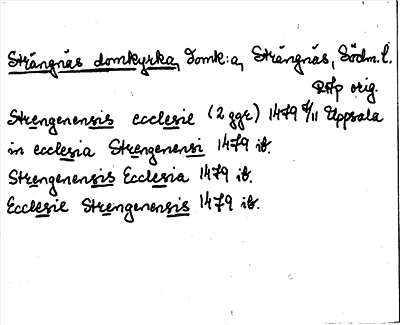 Strängnäs domkyrka, Domk:a, Strängnäs, Södm.l.
RAp orig.
Strengenensis ecclesie (2 ggr) 1479 7/11 Uppsala
in ecclesia Strengenensi 1479 ib.
Strengenensis Ecclesia 1479 ib.
Ecclesie Strengenensis 1479 ib.